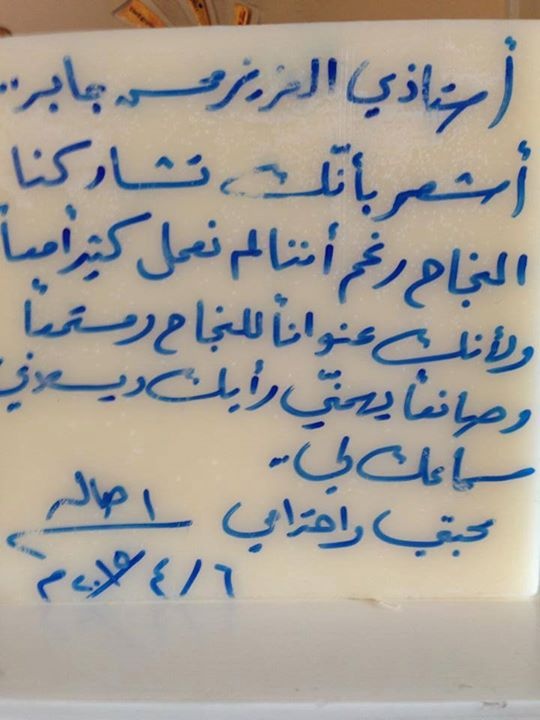 أستاذي العزيز محسن جابر..
أشعر بأنّك تشاركنا
النجاح رغم أننا لم نعمل كثيراً معاً
ولأنك عنواناً للنجاح ومستمعاً
وصانعاً يهمنّي رأيك ويسعدني
سماعك لي..
محبتي واحترامي
أصالة
٦/٤/٢٠١٥م